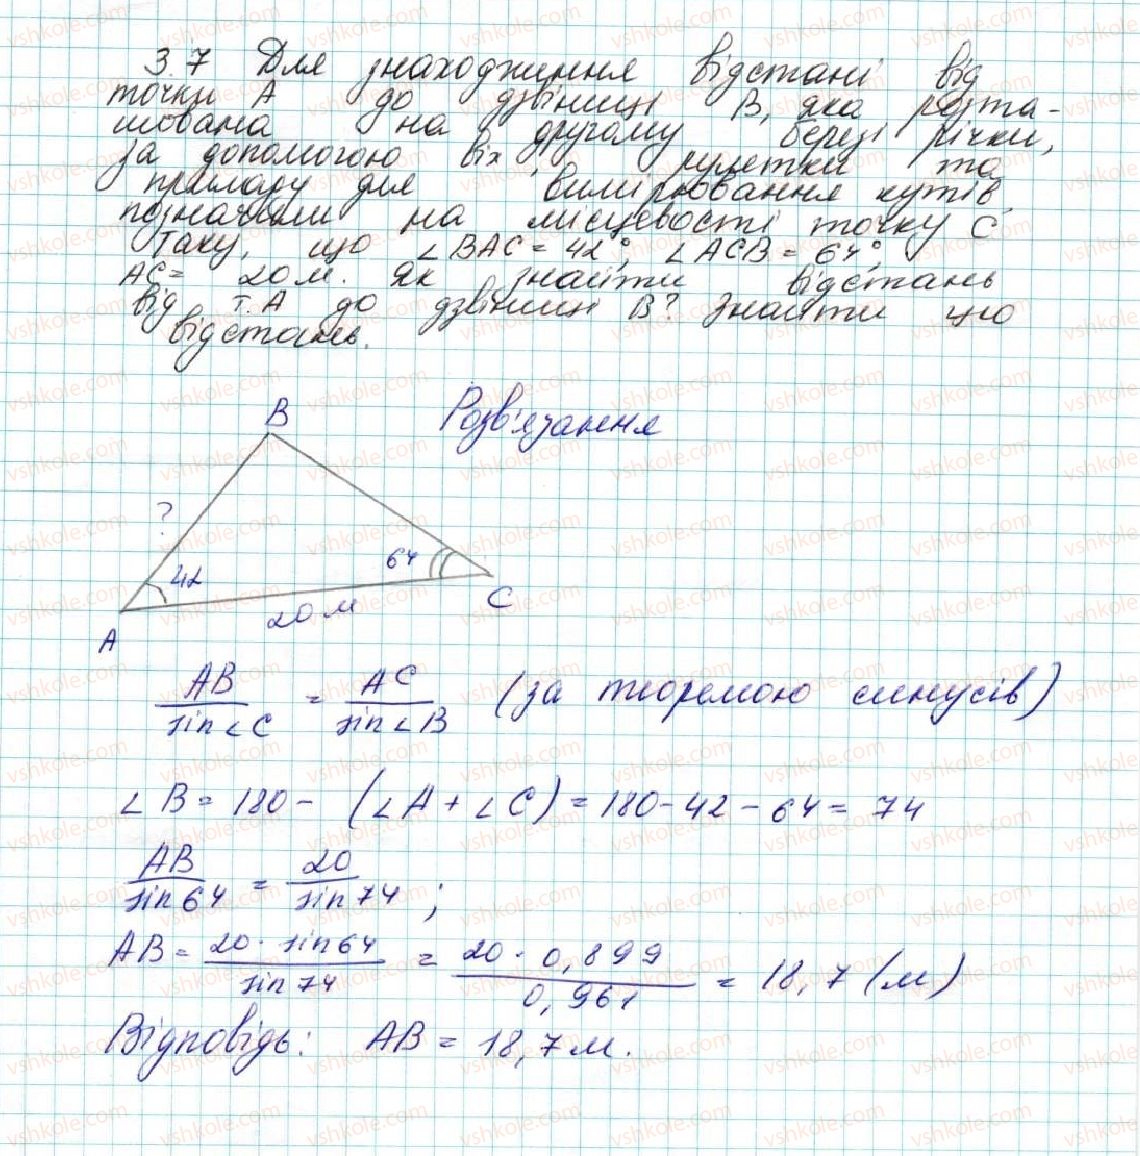 3.7 Для знаходження відстані від
точки А до дзвіниці В, яка розта-
шована на другому березі річки,
за допомогою віх рулетки та
приладу для вимірювання кутів,
позначили на місцевості точку С
таку, що ∠BAC = 42°, ∠ACB = 64°,
AC = 20 м. Як знайти відстань
від т. А до дзвіниці В? Знайти цю
відстань.
Розв'язання
B
?
42
64
A
20 м
C
AB/sin∠C = AC/sin∠B (за теоремою синусів)
∠B = 180 - (∠A + ∠C) = 180 - 42 - 64 = 74
AB/sin64 = 20/sin74 ;
AB = 20 · sin64/sin74 = 20 · 0,899/0,961 = 18,7 (м)
Відповідь: AB = 18,7 м.
vshkole.com